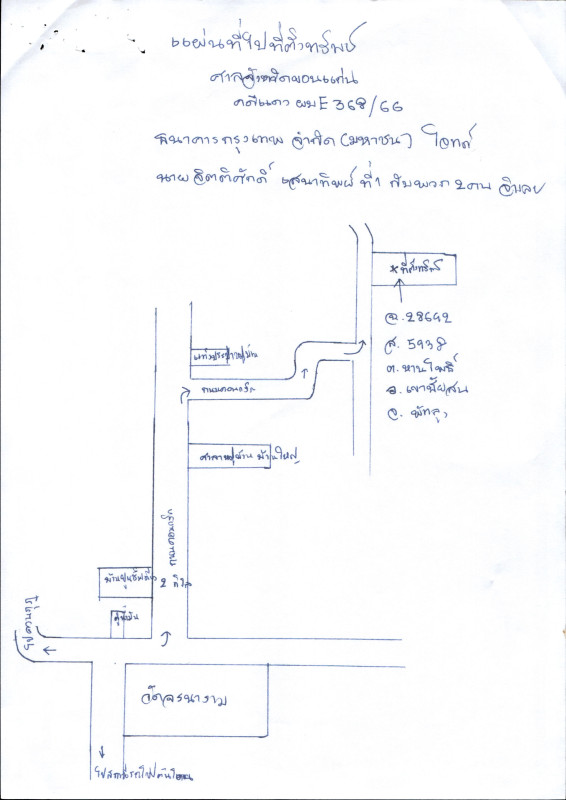 แผนที่ไปที่ตั้งทรัพย์
ศาลจังหวัดขอนแก่น
คดีแดง ผบE368/66
ธนาคารกรุงเทพ จำกัด (มหาชน) โจทก์
นาย กิตติศักดิ์ เสนาทิพย์ ที่1 กับพวก 2คน จำเลย
*ที่ตั้งทรัพย์
ฉ.28692
ส. 5938
ต.หานโพธิ์
อ.เขาชัยสน
จ. พัทลุง
ถนนคอนกรีต
ศาลาหมู่บ้าน บ้านใหญ่
ถนนคอนกรีต
บ้านปูนชั้นเดียว
2 กิโล
ตู้น้ำมัน
ไปควนกุฎ
วัดเจรนาราม
ไปสถานีรถไฟ